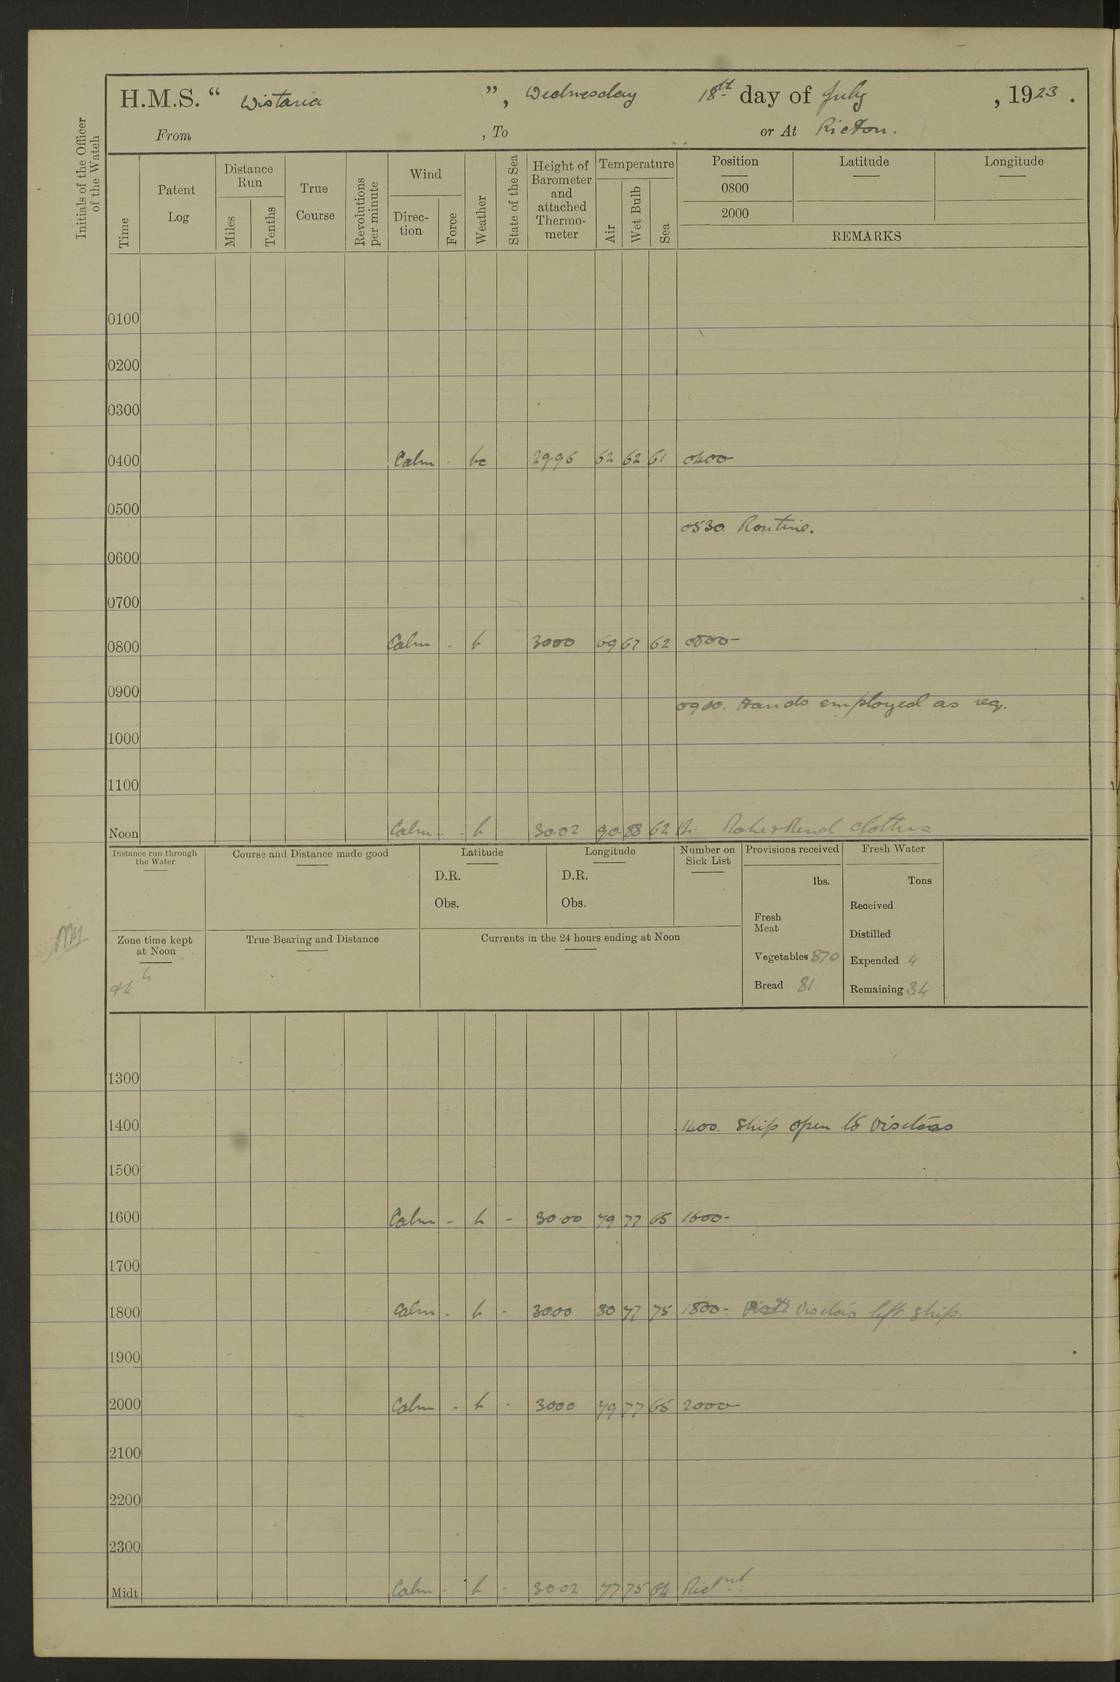 H.M.S. “ Wistaria ”, Wednesday 18th day of July , 1923 .
From , To or At Picton.
Initials of the Officer of the Watch
Time
Patent Log
Distance Run
Miles
Tenths
True Course
Revolutions per minute
Wind
Direc- tion
Force
Weather
State of the Sea
Height of Barometer and attached Thermo- meter
Temperature
Air
Wet Bulb
Sea
Position
Latitude
Longitude
0800
2000
REMARKS
0100
0200
0300
0400 Calm - bc 29.96 62 62 61 0400
0500
0530 Routine.
0600
0700
0800 Calm - b 3000 69 67 62 0800-
0900
0900. Hands employed as req.
1000
1100
Noon Calm - - b 30.02 90 88 62 Make & Mend clothes
Distance run through the Water
Course and Distance made good
Latitude
D.R.
Obs.
Longitude
D.R.
Obs.
Number on Sick List
Provisions received
lbs.
Fresh Meat
Vegetables 870
Bread 81
Fresh Water
Tons
Received
Distilled
Expended 4
Remaining 34
Zone time kept at Noon
True Bearing and Distance
Currents in the 24 hours ending at Noon
1300
1400 1400. Ship open to visitors
1500
1600 Calm - b - 30.00 79 77 65 1600-
1700
1800 Calm - b - 3000 80 77 75 1800- Visitors left ship.
1900
2000 Calm - b - 3000 79 77 65 2000
2100
2200
2300
Midt Calm - b - 30.02 77 75 64